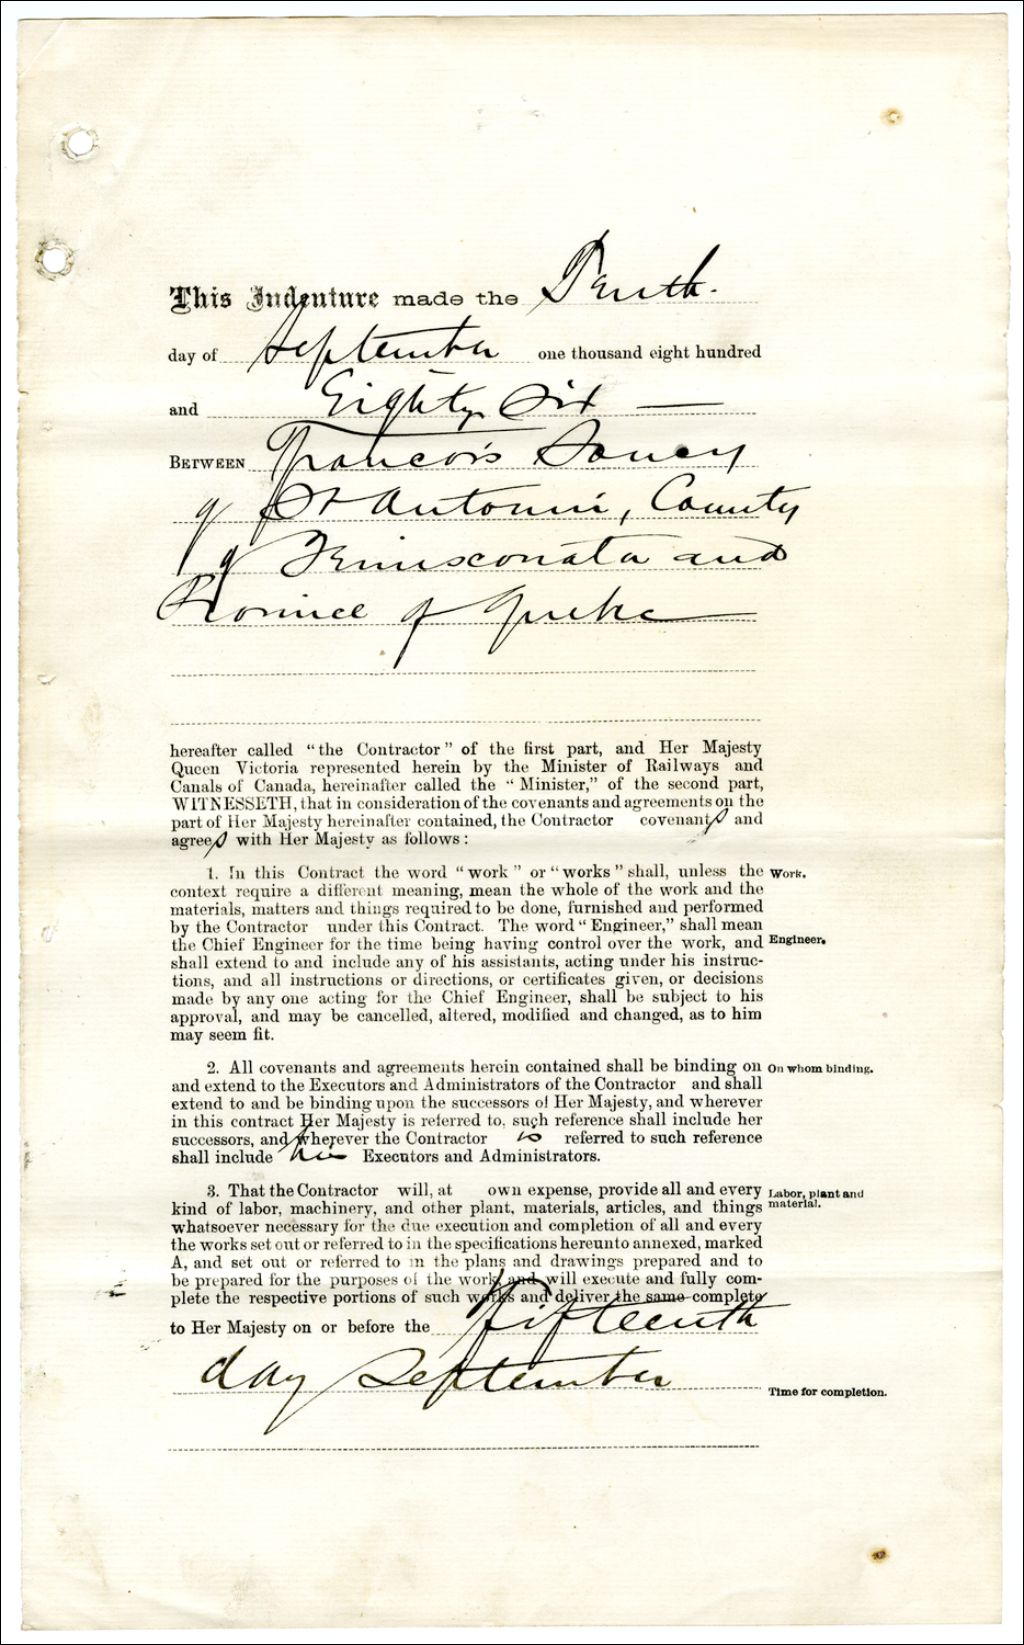 This Indenture made the Tenth.
day of September one thousand eight hundred
and Eighty Six —
BETWEEN Francois Soucy
of St Antonin, County
of Temisconata and
Province of Quebec
hereafter called "the Contractor" of the first part, and Her Majesty
Queen Victoria represented herein by the Minister of Railways and
Canals of Canada, hereinafter called the "Minister," of the second part,
WITNESSETH, that in consideration of the covenants and agreements on the
part of Her Majesty hereinafter contained, the Contractor covenants and
agrees with Her Majesty as follows:
1. In this Contract the word "work" or "works" shall, unless the Work.
context require a different meaning, mean the whole of the work and the
materials, matters and things required to be done, furnished and performed
by the Contractor under this Contract. The word "Engineer," shall mean
the Chief Engineer for the time being having control over the work, and Engineer.
shall extend to and include any of his assistants, acting under his instruc-
tions, and all instructions or directions, or certificates given, or decisions
made by any one acting for the Chief Engineer, shall be subject to his
approval, and may be cancelled, altered, modified and changed, as to him
may seem fit.
2. All covenants and agreements herein contained shall be binding on On whom binding.
and extend to the Executors and Administrators of the Contractor and shall
extend to and be binding upon the successors of Her Majesty, and wherever
in this contract Her Majesty is referred to, such reference shall include her
successors, and wherever the Contractor is referred to such reference
shall include his Executors and Administrators.
3. That the Contractor will, at own expense, provide all and every Labor, plant and
kind of labor, machinery, and other plant, materials, articles, and things material.
whatsoever necessary for the due execution and completion of all and every
the works set out or referred to in the specifications hereunto annexed, marked
A, and set out or referred to in the plans and drawings prepared and to
be prepared for the purposes of the work, and will execute and fully com-
plete the respective portions of such works and deliver the same complete
to Her Majesty on or before the fifteenth
day September
Time for completion.